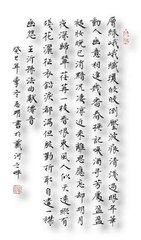 層綠峨峨纖瓊皎皎倒壓波痕清淺過眼年華
動人幽意相逢幾番春換記喚酒尋芳處盈盈
褪妝晚已消黯況淒涼近來離思應忘卻明月
夜深歸輦荏苒一枝春恨東風人似天遠縱有
殘花灑征衣鉛淚都滿但殷勤折取自遣一襟
幽怨 王沂孫法曲獻仙音
癸巳年季冬志明書於戴河之畔